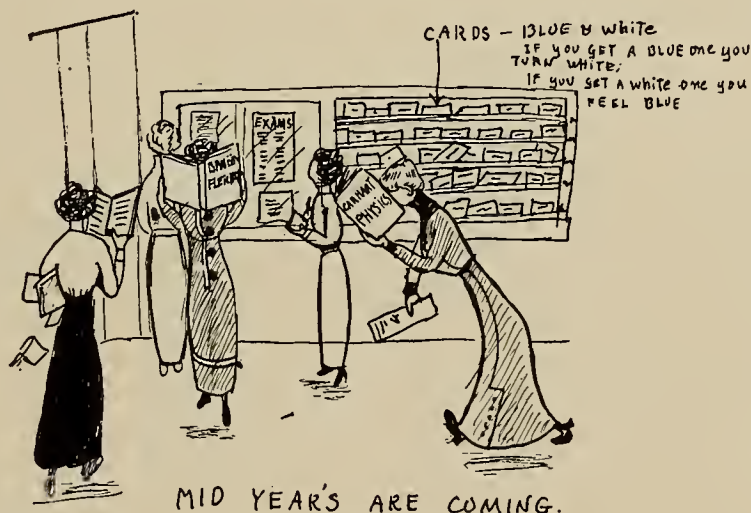 CARDS – BLUE & White
IF you GET A BLUE one you
TURN WHITE;
IF you GET A white one you
FEEL BLUE
EXAMS
CARHART
PHYSICS
MID YEAR'S ARE COMING.